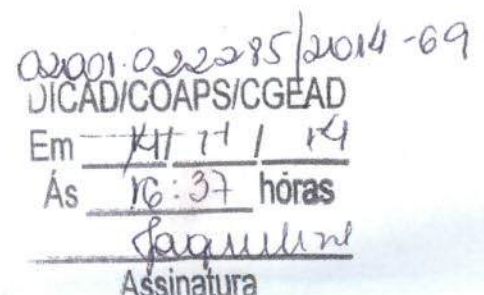 02001.022285/2014-69
DICAD/COAPS/CGEAD
Em 14/ 11 / 14
Ás 16:37 hóras
Jaqueline
Assinatura